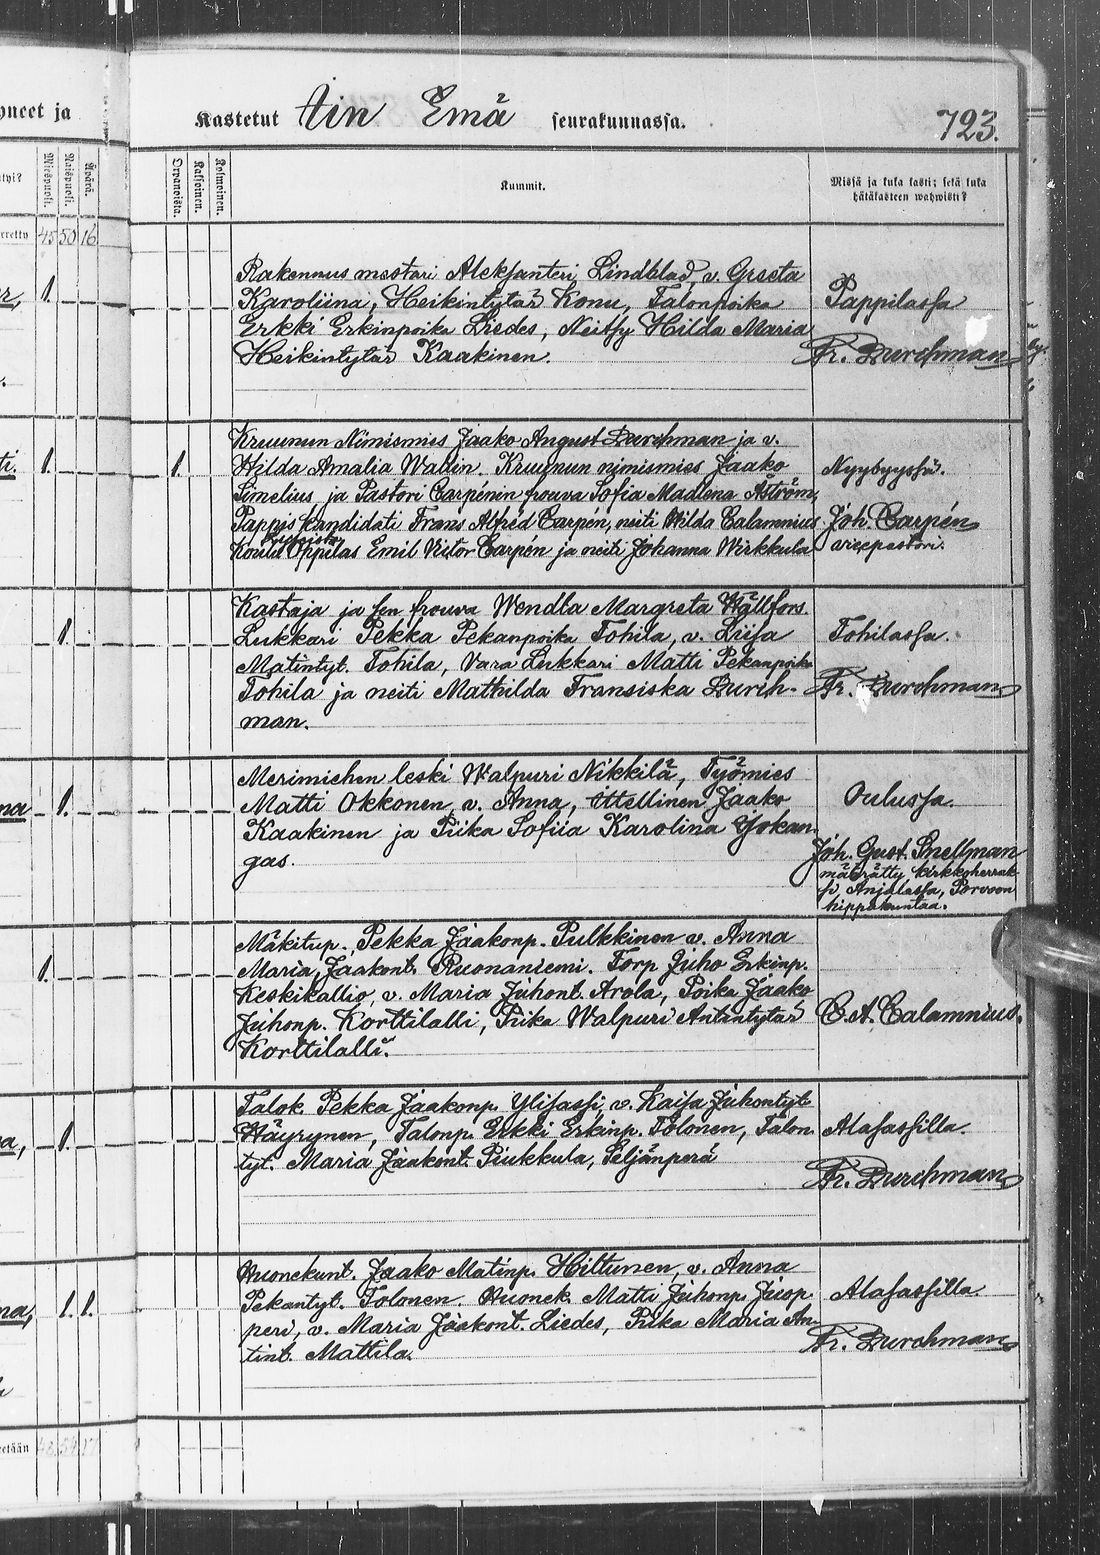 yneet ja
Kastetut Iin Emä seurakunnassa. 723.
Miespuoli. Naispuoli. Äpärä. Orpanoista. Kaksoinen. Kolmoinen.
Kummit.
Missä ja kuka kasti; sekä kuka hätäkasteen wahwisti?
45 50 16
Rakennus mestari Aleksanteri Lindblad, v. Greeta
Karoliina, Heikintytär Konu, Talonpoika
Erkki Erkinpoika Liedes, Neitsy Hilda Maria
Heikintytär Kaakinen.
Pappilassa
Fr. Durchman
1.
Kruunun Nimismies Jaako August Durchman ja v.
Hilda Amalia Wadin. Kruunun nimismies Jaako
Simelius ja Pastori Carpénin frouva Sofia Madlena Åström,
Pappis kandidati Frans Alfréd Carpén, neiti Hilda Calamnius
Koulu Oppilas Emil Victor Carpén ja neiti Johanna Wirkkula
Nyybyyssä.
Joh. Carpén
vicepastori.
1. 1.
Kastaja ja sen frouva Wendla Margreta Wällfors.
Lukkari Pekka Pekanpoika Tohila, v. Liisa
Matintyt. Tohila, Vara Lukkari Matti Pekanpoika
Tohila ja neiti Mathilda Fransiska Durch-
man.
Tohilassa.
Fr. Durchman
1.
Merimiehen leski Walpuri Nikkilä, Työmies
Matti Okkonen, v. Anna, Ittellinen Jaako
Kaakinen ja Piika Sofiia Karolina Jokan-
gas.
Oulussa.
Joh. Gust. Snellman
määrätty kirkkoherrak-
si Anjalassa, Porvoon
hippakuntaa.
1.
Mäkitup. Pekka Jaakonp. Pulkkinen v. Anna
Maria, Jaakont. Ruonaniemi. Torp. Juho Erkinp.
Keskikallio, v. Maria Juhont. Arola, Poika Jaako
Juhonp. Korttilalli, Piika Walpuri Antintytär
Korttilalli.
C. A. Calamnius.
1.
Talok. Pekka Jaakonp. Ylisassi, v. Kaisa Juhontyt.
Häyrynen, Talonp. Erkki Erkinp. Tolonen, Talon.
tyt. Maria Jaakont. Piukkula, Seljänperä
Alasassilla.
Fr. Durchman
1.
Huonekunt. Jaako Matinp. Hiltunen, v. Anna
Pekantyt. Tolonen. Huonek. Matti Juhonp. Juop
peri, v. Maria Jaakont. Liedes, Piika Maria An-
tint. Mattila.
Alasassilla
Fr. Durchman
1. 1.
etään 48 54 17